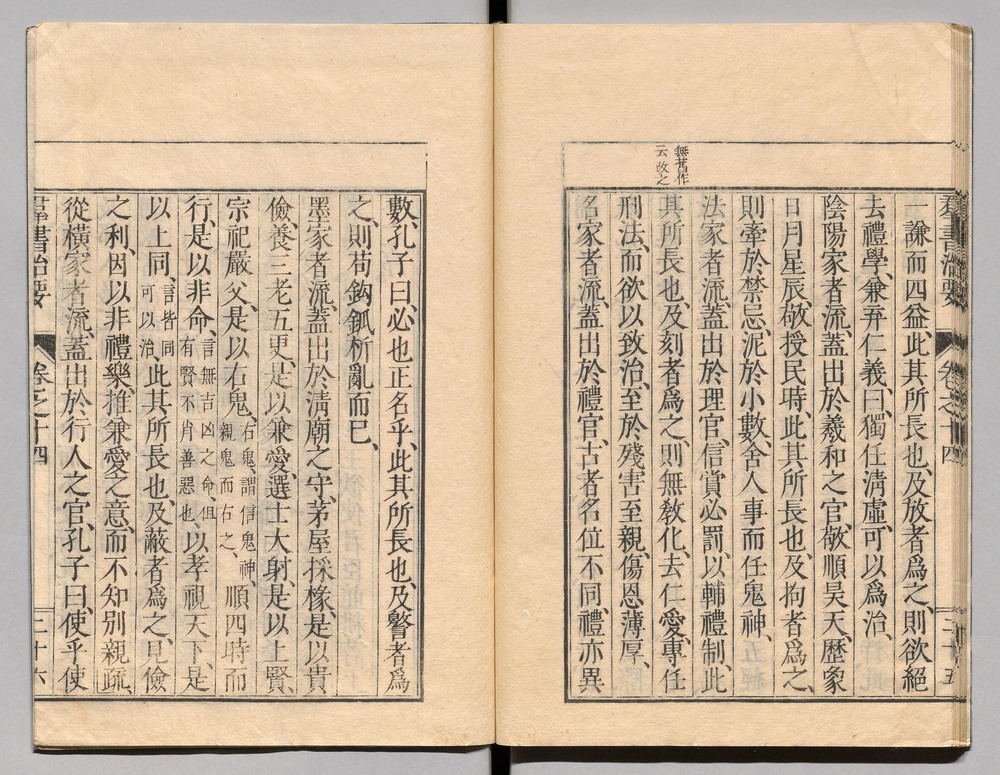 群書治要 卷之十四 三十五
無舊作
云改之
一謙而四益、此其所長也、及放者爲之、則欲絕
去禮學、兼弃仁義、曰、獨任清虛、可以爲治、
陰陽家者流、蓋出於羲和之官、敬順昊天、歷象
日月星辰、敬授民時、此其所長也、及拘者爲之、
則牽於禁忌、泥於小數、舍人事而任鬼神、
法家者流、蓋出於理官、信賞必罰、以輔禮制、此
其所長也、及刻者爲之、則無敎化、去仁愛、專任
刑法、而欲以致治、至於殘害至親、傷恩薄厚、
名家者流、蓋出於禮官、古者名位不同、禮亦異
數、孔子曰、必也正名乎、此其所長也、及警者爲
之、則苟鈎鈲析亂而已、
墨家者流、蓋出於淸廟之守、茅屋採椽、是以貴
儉、養三老五更、是以兼愛、選士大射、是以上賢、
宗祀嚴父、是以右鬼、右鬼、謂信鬼神、親鬼而右之、順四時而
行、是以非命、言無吉凶之命、但有賢不肖善惡也、以孝視天下、是
以上同、言皆同可以治、此其所長也、及蔽者爲之、見儉
之利、因以非禮樂、推兼愛之意、而不知別親疏、
從橫家者流、蓋出於行人之官、孔子曰、使乎使
羣書治要 卷之十四 三十六